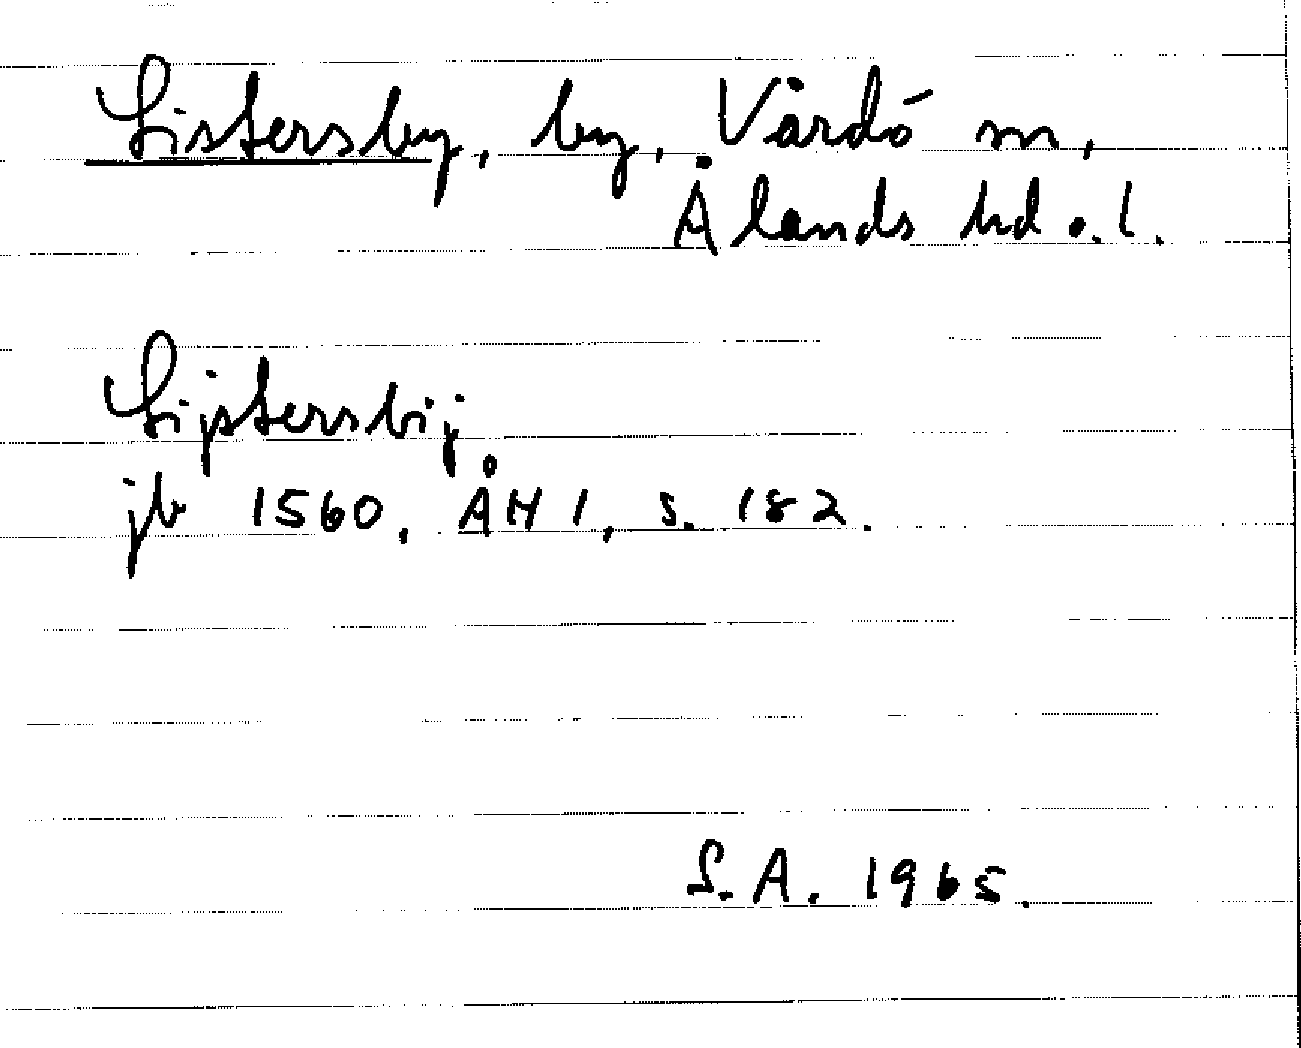 Listersby, by, Vårdö sn,
Ålands hd o. l.
Lijstersbij
jb 1560. ÅH 1, s. 182.
S.A. 1965.